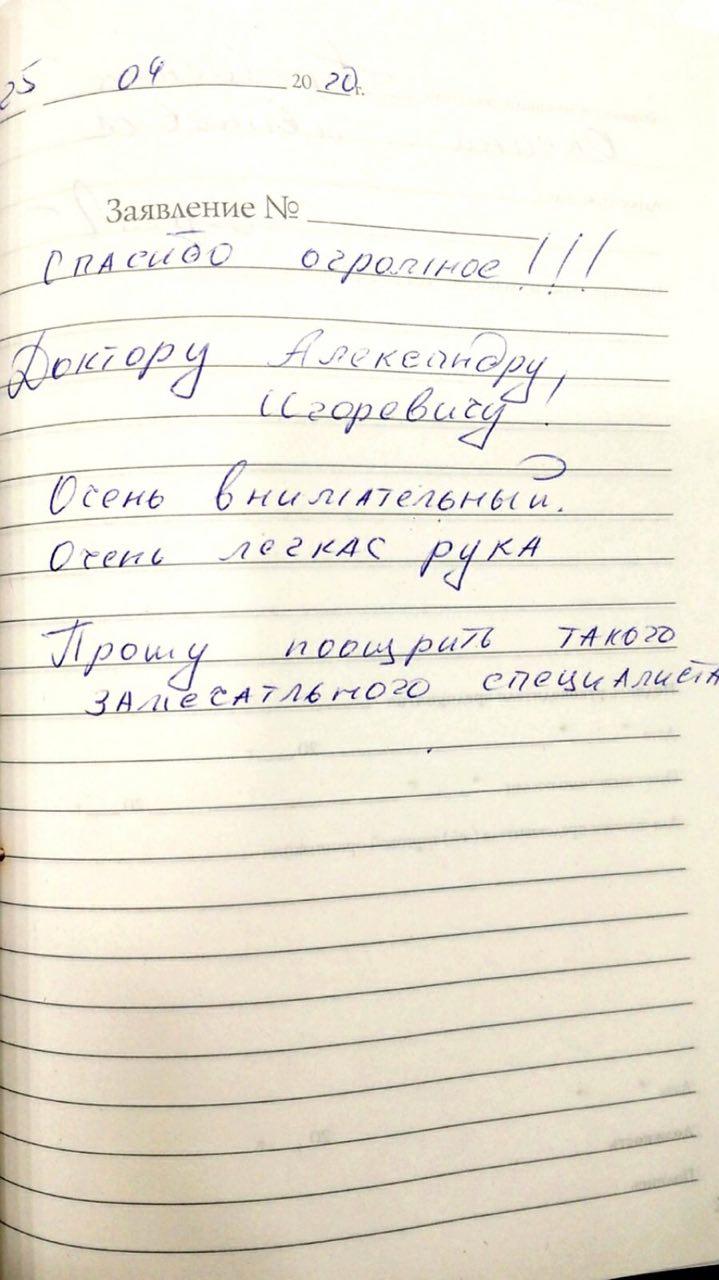 25 04 2020г.
Заявление №
Спасибо огромное!!!
Доктору Александру,
Игоревичу!
Очень внимательный.
Очень легкая рука
Прошу поощрить такого
замечатльного специалиста